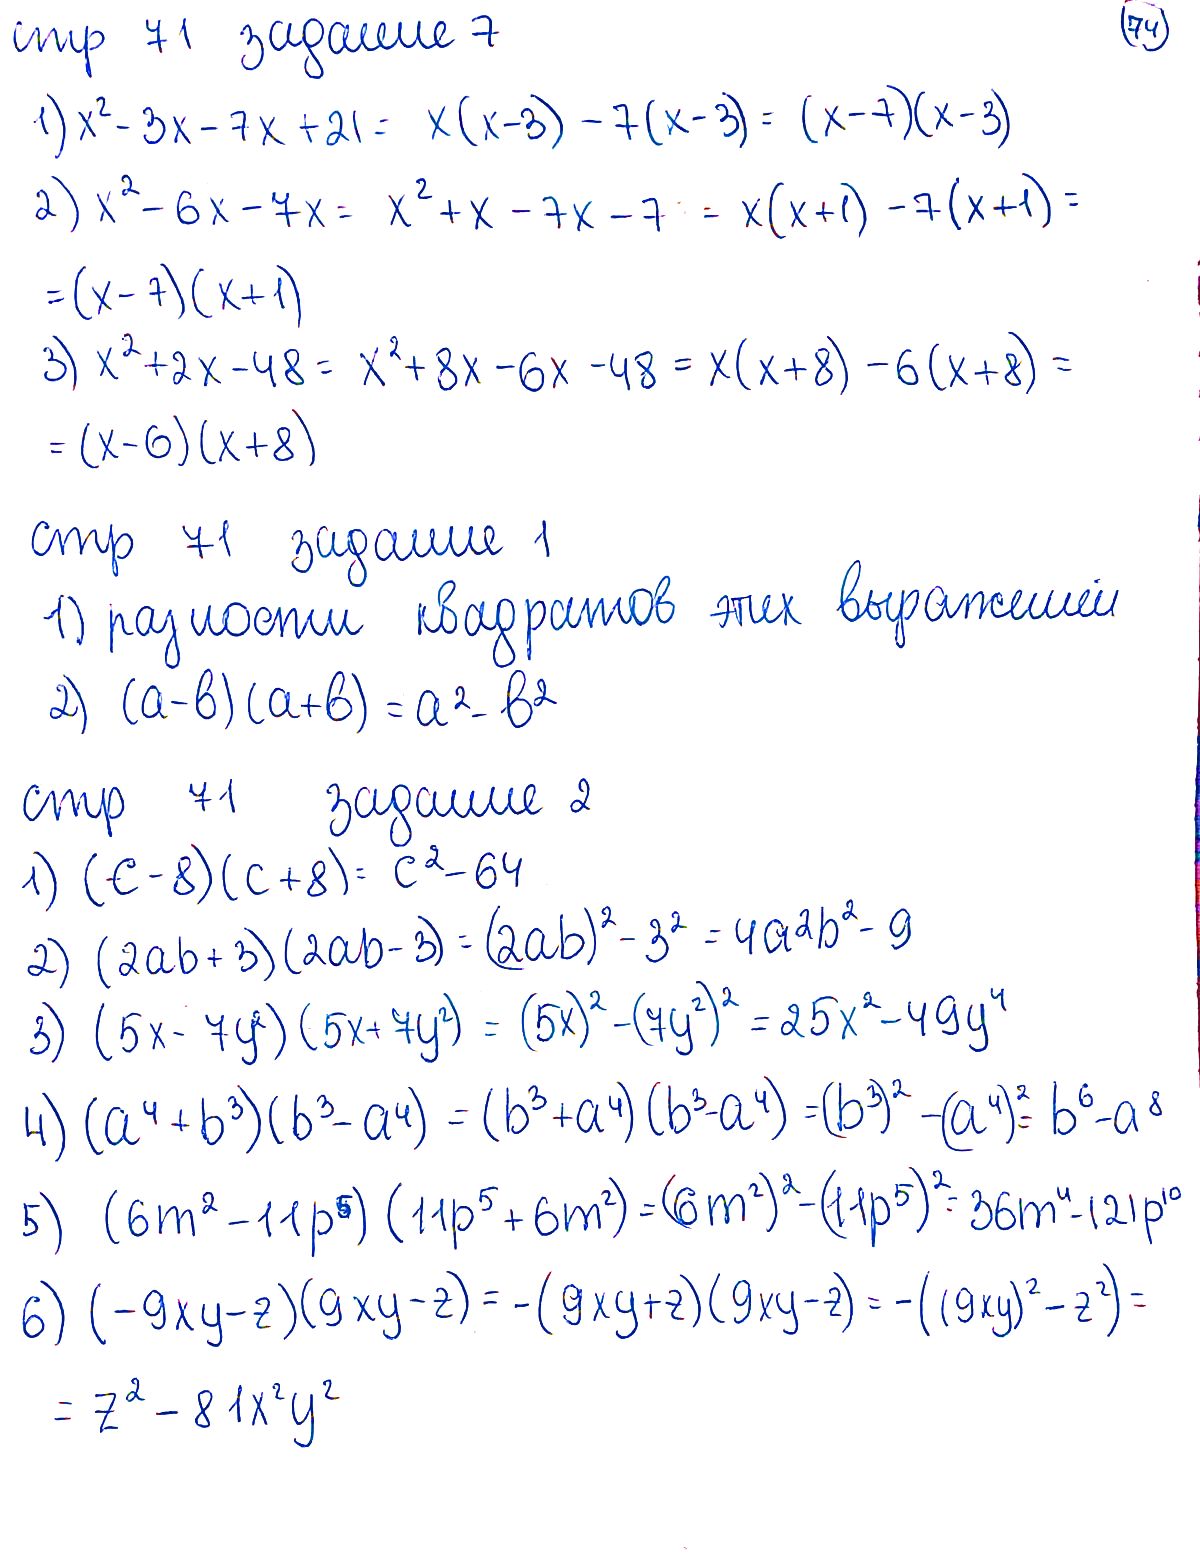 стр 71 задание 7
74
1) x² - 3x - 7x + 21 = x(x-3) - 7(x-3) = (x-7)(x-3)
2) x² - 6x - 7x = x² + x - 7x - 7 = x(x+1) - 7(x+1) =
= (x-7)(x+1)
3) x² + 2x - 48 = x² + 8x - 6x - 48 = x(x+8) - 6(x+8) =
= (x-6)(x+8)
стр 71 задание 1
1) разности квадратов этих выражений
2) (a-b)(a+b) = a² - b²
стр 71 задание 2
1) (c-8)(c+8) = c² - 64
2) (2ab+3)(2ab-3) = (2ab)² - 3² = 4a²b² - 9
3) (5x - 7y²)(5x + 7y²) = (5x)² - (7y²)² = 25x² - 49y⁴
4) (a⁴ + b³)(b³ - a⁴) = (b³ + a⁴)(b³ - a⁴) = (b³)² - (a⁴)² = b⁶ - a⁸
5) (6m² - 11p⁵)(11p⁵ + 6m²) = (6m²)² - (11p⁵)² = 36m⁴ - 121p¹⁰
6) (-9xy - z)(9xy - z) = -(9xy + z)(9xy - z) = -((9xy)² - z²) =
= z² - 81x²y²